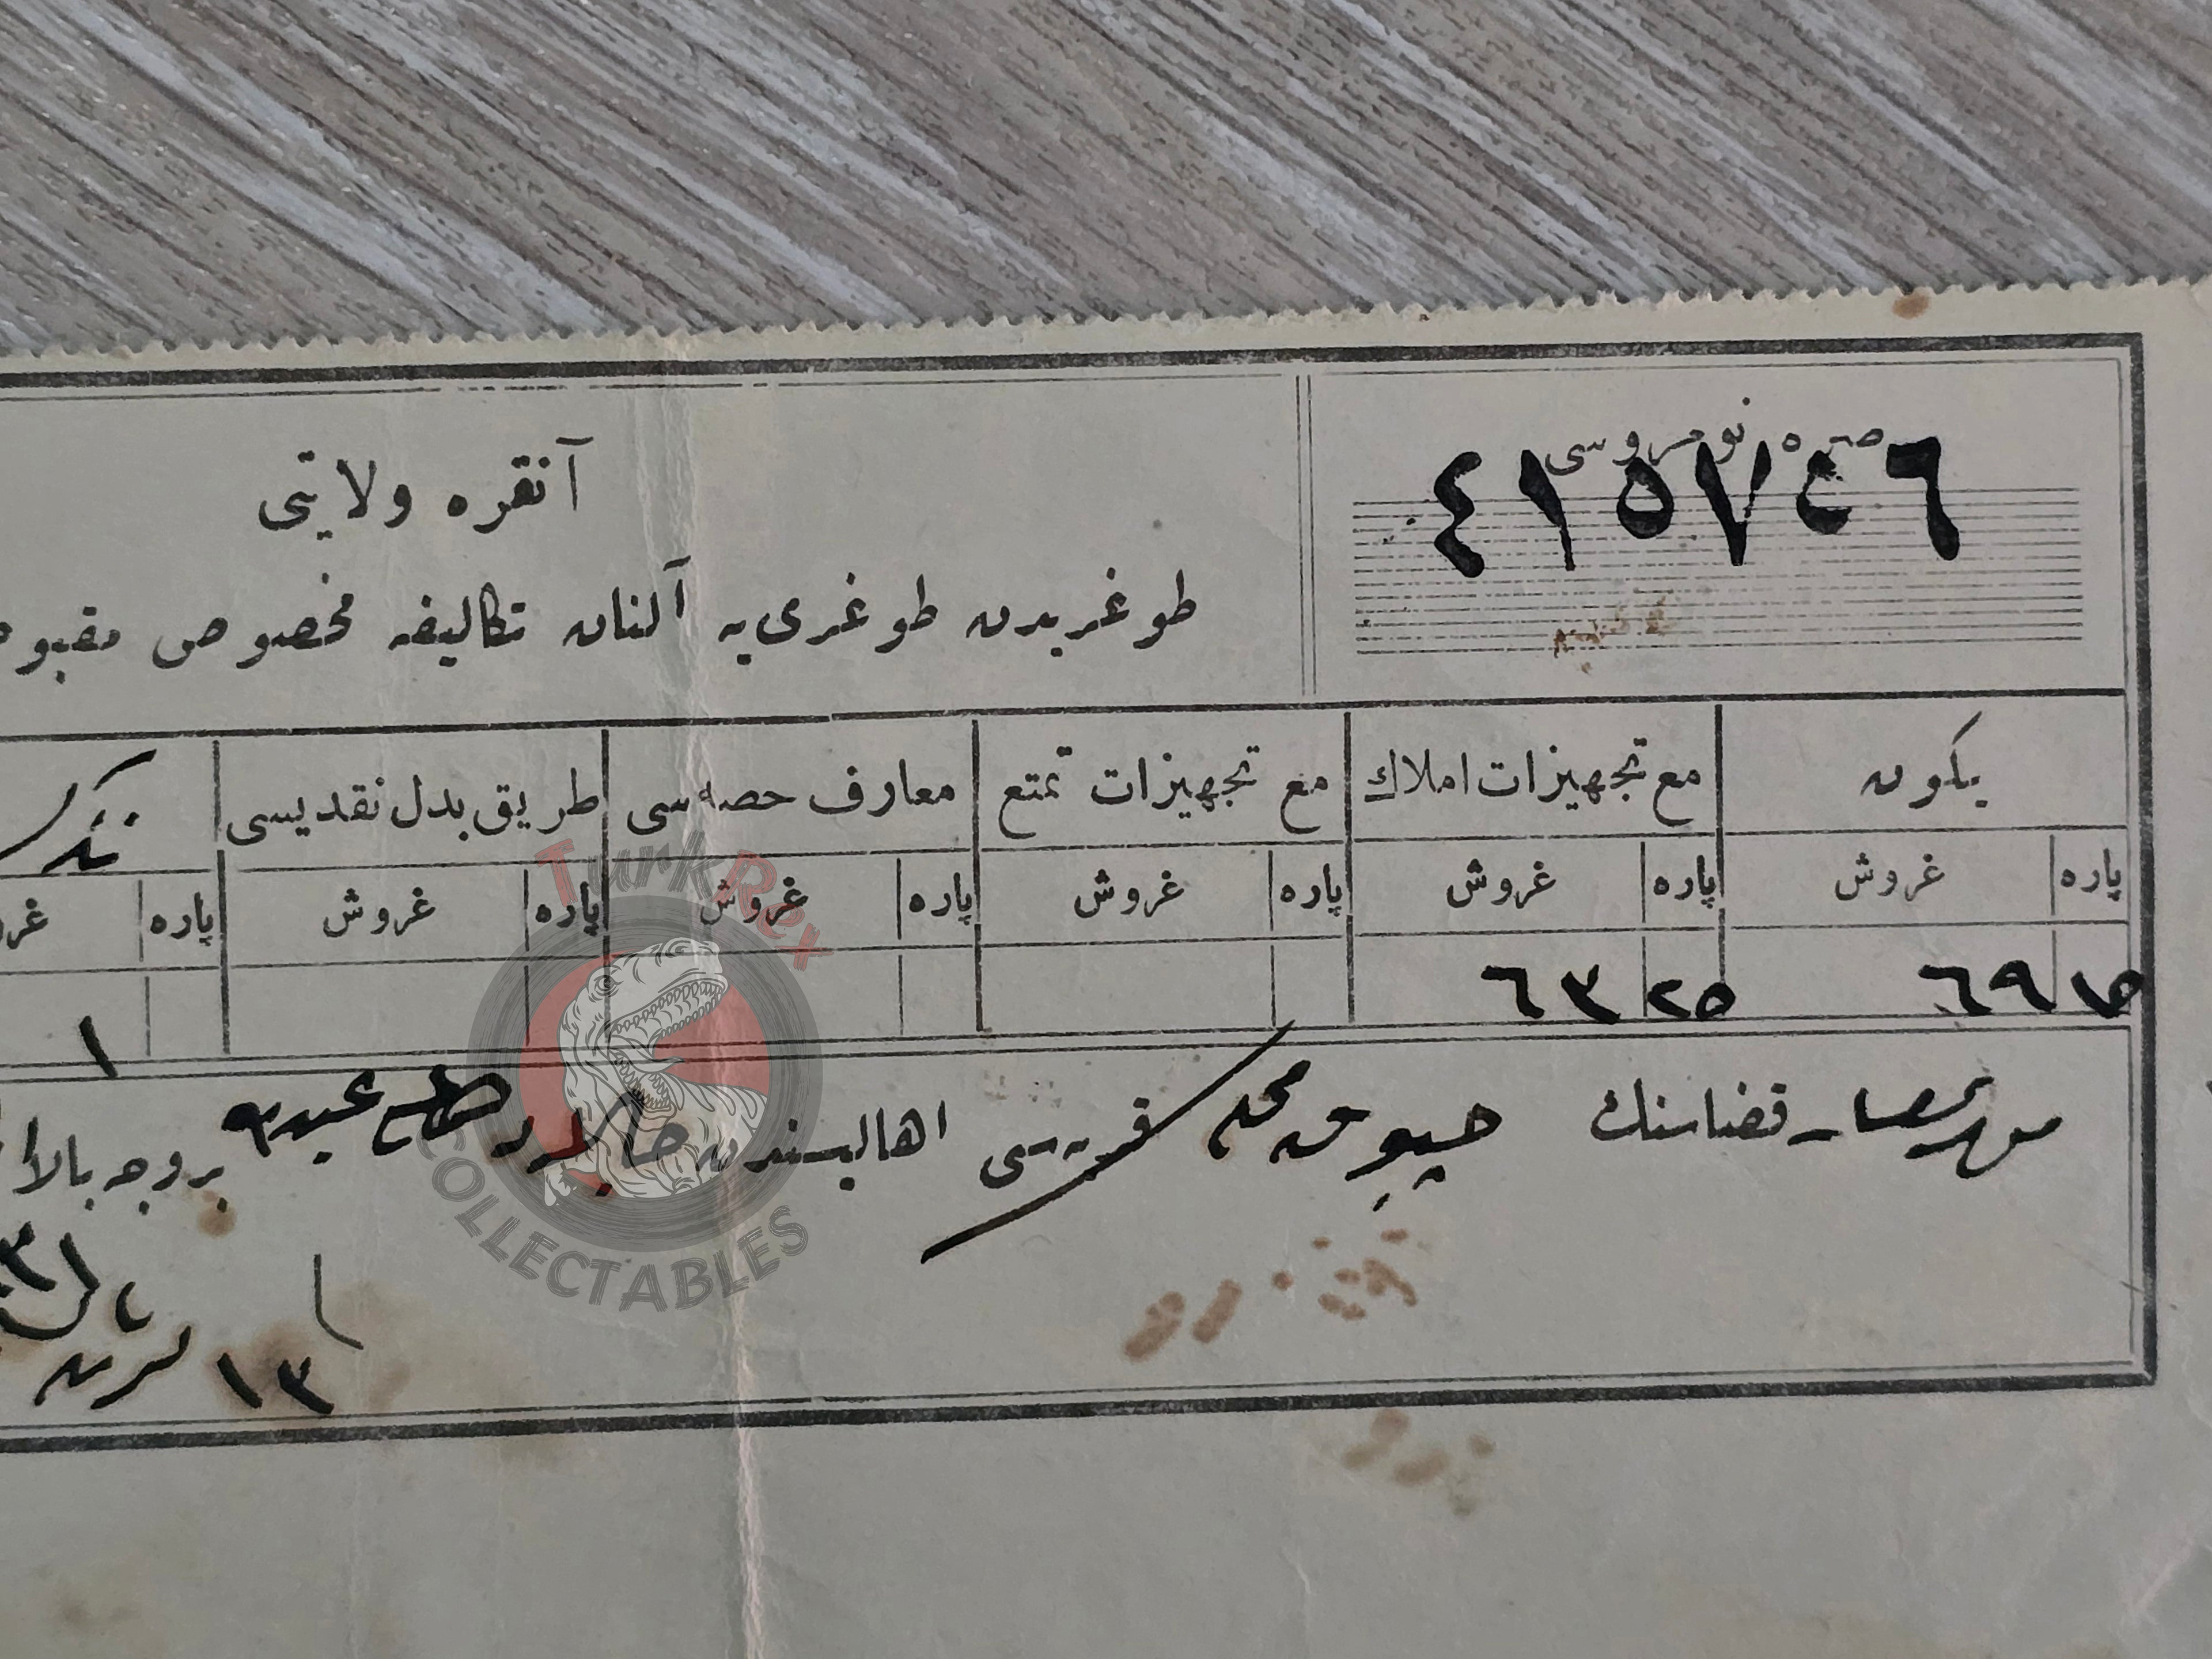 صره نومروسی
٤١٥٧٤٦
آنقره ولايتی
طوغريدن طوغری‌يه آلنان تكاليفه مخصوص
يكون
مع تجهيزات املاك
مع تجهيزات تمتع
معارف حصه‌سی
طريق بدل نقديسی
پاره غروش پاره غروش پاره غروش پاره غروش پاره غروش پاره
٦٩ ٦٣ ٢٥ ١
قضاسنك محله قريه‌سی اهاليسندن بروجه بالا
١٣
TurkRex
COLLECTABLES